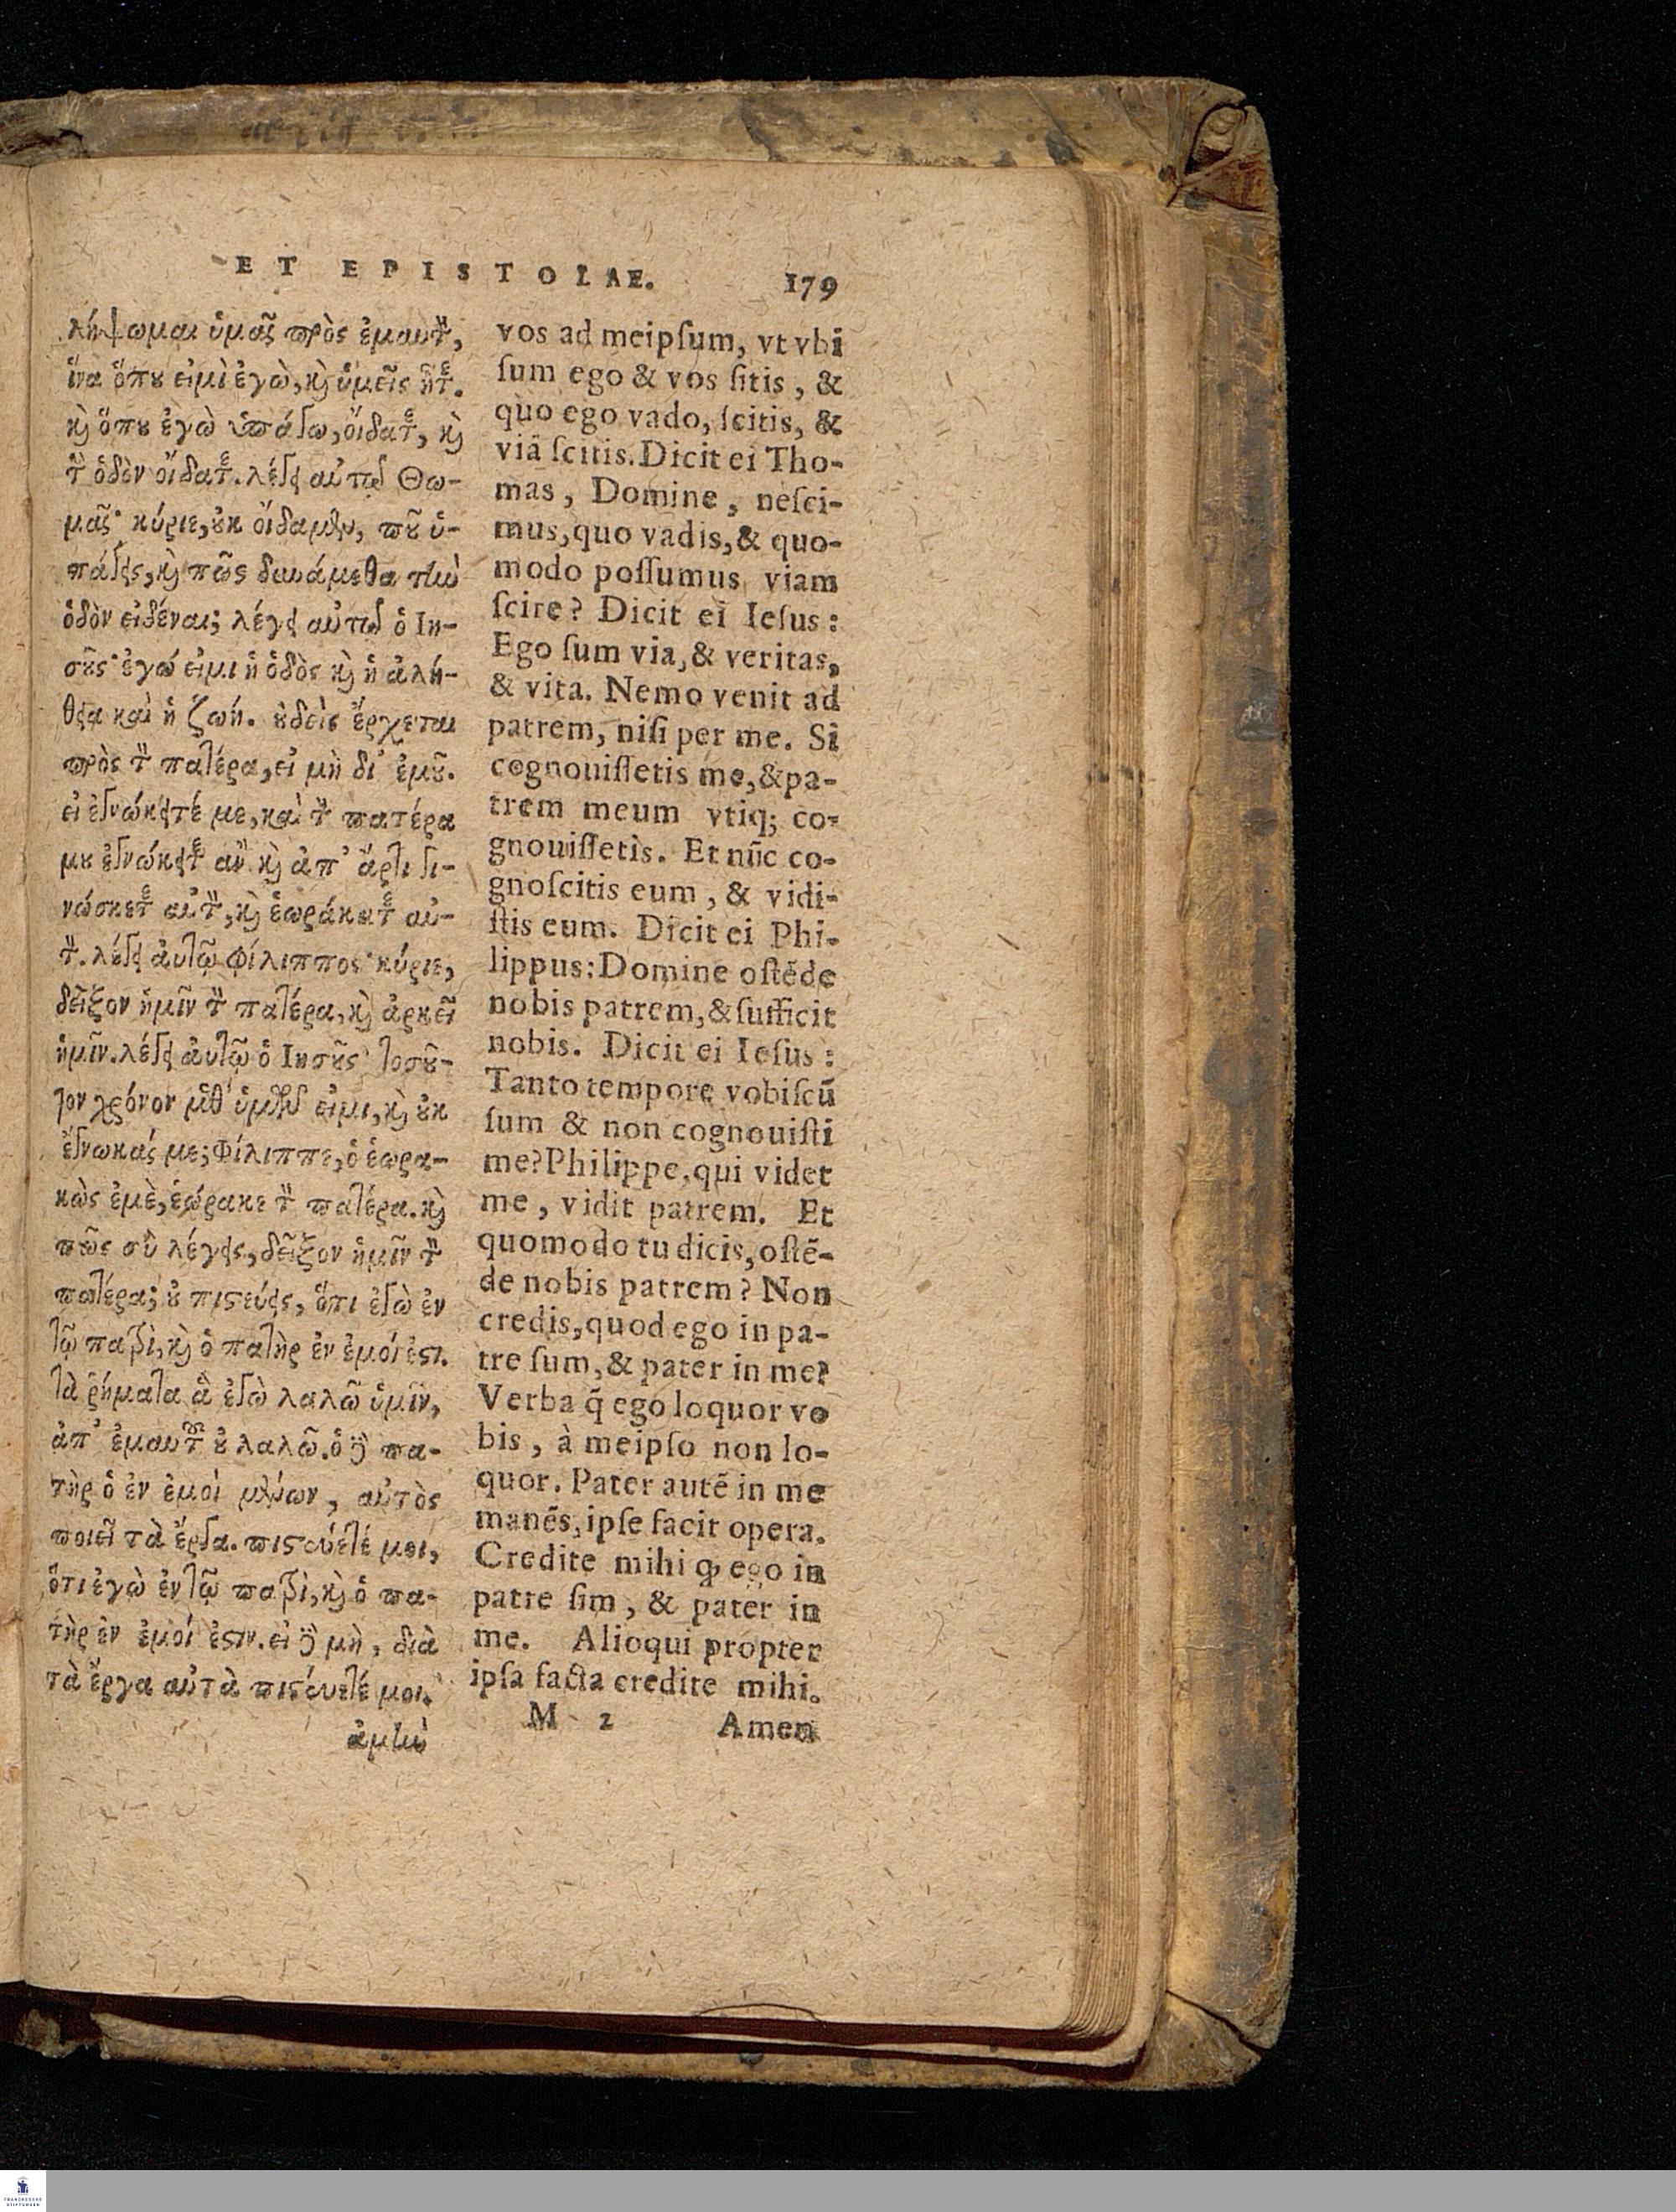 ET EPISTOLAE. 179
λήψωμαι ὑμᾶς πρὸς ἐμαυτὸν,
ἵνα ὅπου εἰμὶ ἐγὼ, καὶ ὑμεῖς ἦτε.
καὶ ὅπου ἐγὼ ὑπάγω, οἴδατε, καὶ
τὴν ὁδὸν οἴδατε. λέγει αὐτῷ Θω-
μᾶς· κύριε, οὐκ οἴδαμεν, ποῦ ὑ-
πάγεις, καὶ πῶς δυνάμεθα τὴν
ὁδὸν εἰδέναι; λέγει αὐτῷ ὁ Ιη-
σοῦς· ἐγώ εἰμι ἡ ὁδὸς καὶ ἡ ἀλή-
θεια καὶ ἡ ζωή. οὐδεὶς ἔρχεται
πρὸς τὸν πατέρα, εἰ μὴ δι' ἐμοῦ.
εἰ ἐγνώκειτέ με, καὶ τὸν πατέρα
μου ἐγνώκειτε ἂν καὶ ἀπ' ἄρτι γι-
νώσκετε αὐτὸν, καὶ ἑωράκατε αὐ-
τὸν. λέγει ἀυτῷ Φίλιππος· κύριε,
δεῖξον ἡμῖν τὸν πατέρα, καὶ ἀρκεῖ
ἡμῖν. λέγει ἀυτῷ ὁ Ιησοῦς· τοσοῦ-
τον χρόνον μεθ' ὑμῶν εἰμι, καὶ οὐκ
ἔγνωκάς με; Φίλιππε, ὁ ἑωρα-
κὼς ἐμὲ, ἑώρακε τὸν πατέρα. καὶ
πῶς σὺ λέγεις, δεῖξον ἡμῖν τὸν
πατέρα; οὐ πιστεύεις, ὅτι ἐγὼ ἐν
τῷ πατρὶ, καὶ ὁ πατὴρ ἐν ἐμοί ἐστι.
τὰ ῥήματα ἃ ἐγὼ λαλῶ ὑμῖν,
ἀπ' ἐμαυτοῦ οὐ λαλῶ. ὁ δὲ πα-
τὴρ ὁ ἐν ἐμοὶ μένων, αὐτὸς
ποιεῖ τὰ ἔργα. πιστεύετέ μοι,
ὅτι ἐγὼ ἐν τῷ πατρὶ, καὶ ὁ πα-
τὴρ ἐν ἐμοί ἐστιν. εἰ δὲ μὴ, διὰ
τὰ ἔργα αὐτὰ πιστεύετέ μοι.
ἀμὴν
vos ad meipſum, vt vbi
ſum ego & vos ſitis, &
quo ego vado, ſcitis, &
viã ſcitis. Dicit ei Tho-
mas, Domine, neſci-
mus, quo vadis, & quo-
modo poſſumus viam
ſcire? Dicit ei Ieſus:
Ego ſum via, & veritas,
& vita. Nemo venit ad
patrem, niſi per me. Si
cognouiſſetis me, & pa-
trem meum vtiq; co-
gnouiſſetis. Et nũc co-
gnoſcitis eum, & vidi-
ſtis eum. Dicit ei Phi-
lippus: Domine oſtẽde
nobis patrem, & ſufficit
nobis. Dicit ei Ieſus:
Tanto tempore vobiſcũ
ſum & non cognouiſti
me? Philippe, qui videt
me, vidit patrem. Et
quomodo tu dicis, oſtẽ-
de nobis patrem? Non
credis, quod ego in pa-
tre ſum, & pater in me?
Verba q̃ ego loquor vo
bis, à meipſo non lo-
quor. Pater autẽ in me
manẽs, ipſe facit opera.
Credite mihi ꝙ ego in
patre ſim, & pater in
me. Alioqui propter
ipſa facta credite mihi.
M 2 Amen
FRANCKESCHE
STIFTUNGEN